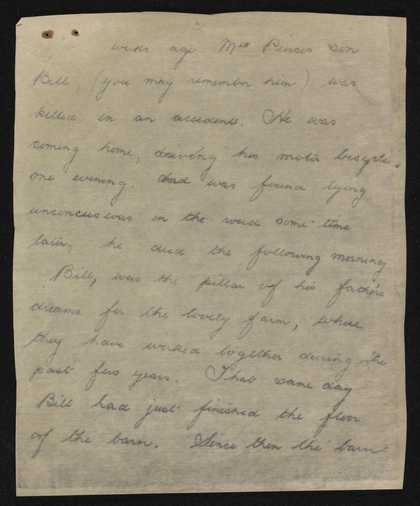 weeks ago Mrs Pierces son
Bill, (you may remember him) was
killed in an accident. He was
coming home, driving his motor bicycle.
one evening. And was found lying
unconscuswas in the road some time
later, he died the following morning
Bill, was the pillar of his father's
dreams for the lovely farm, where
they have worked together during the
past few years. That same day
Bill had just finished the floor
of the barn. Since then the barn